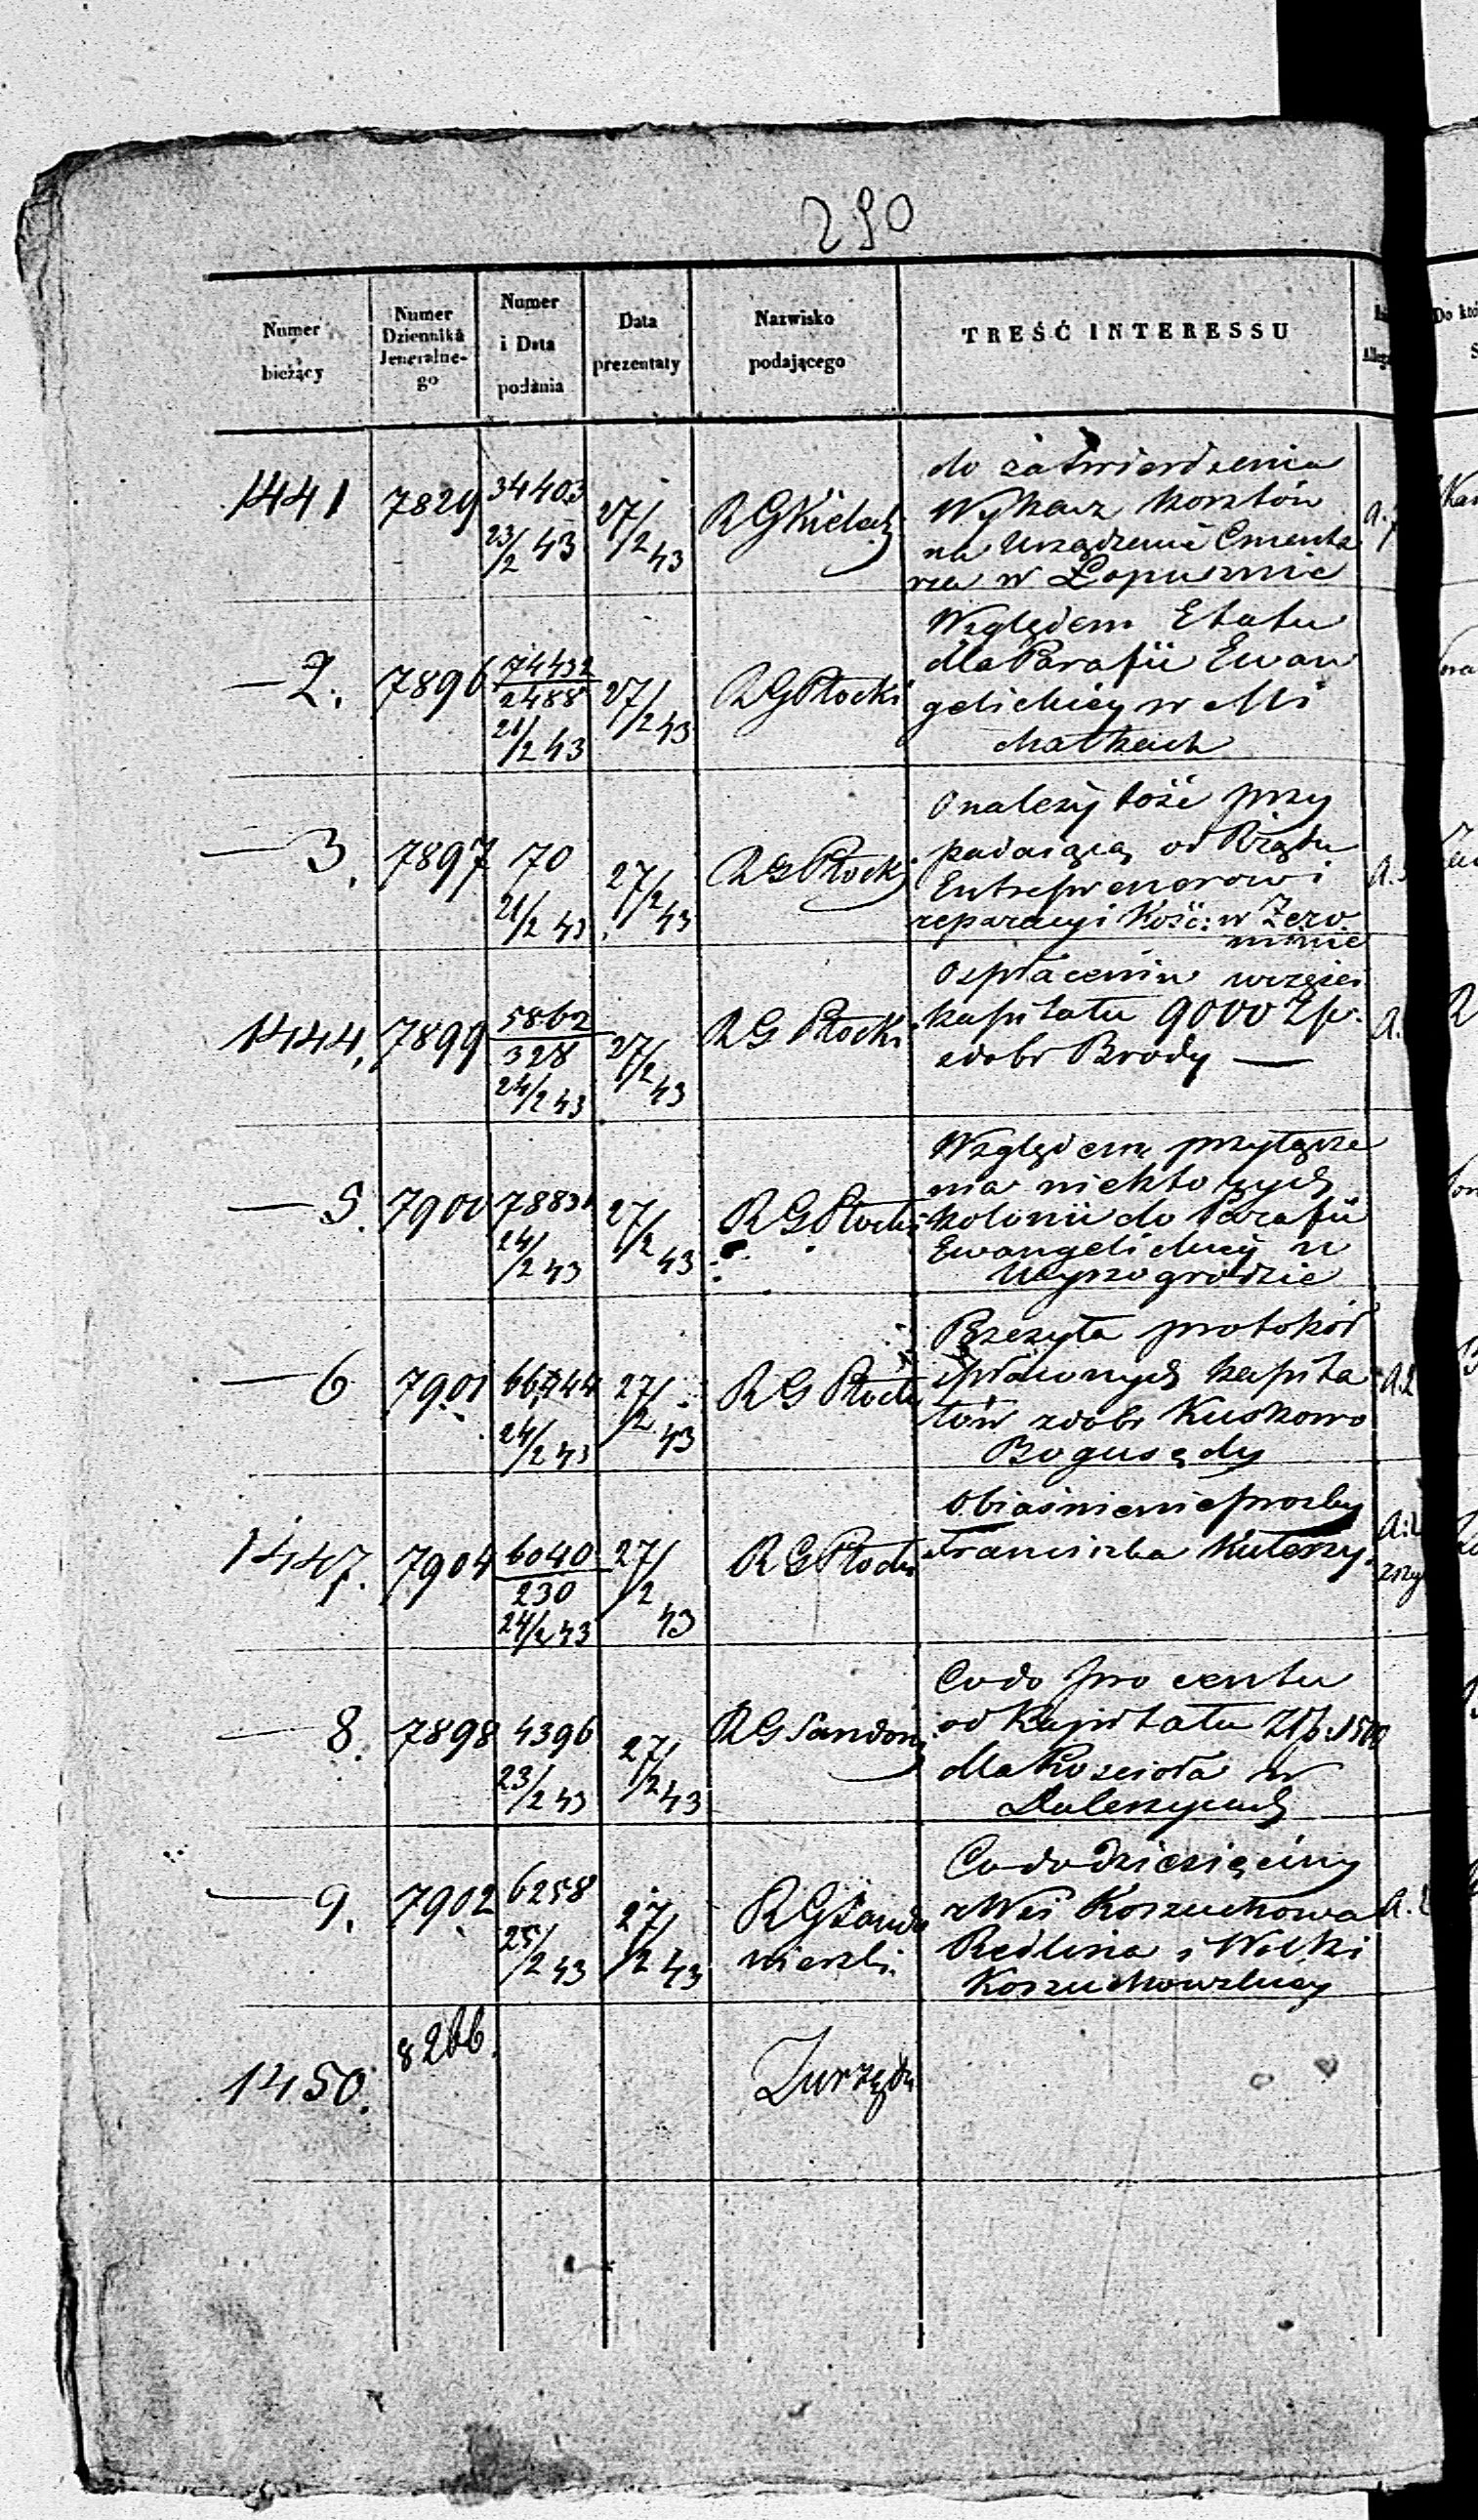 290
Numer bieżący
Numer Dziennika Jeneralnego
Numer i Data podania
Data prezentaty
Nazwisko podającego
TREŚĆ INTERESSU
1441 7829 34403 23/2 43 27/2 43 RGKielecki
do zatwierdzenia
Wykaz kosztów
na Urządzenie Cmenta
rza w Łopusznie
—2. 7896 74432/2488 21/2 43 27/2 43 RGPłocki
Względem Etatu
dla Parafii Ewan
gelickiey w Mi
chałkach
—3. 7897 70 21/2 43 27/2 43 RGPłocki
O należytość przy
padaiącą od Rządu
Entreprenerowi
reparacyi Kość: w Żero
minie
1444. 7899 5862/328 24/2 43 27/2 43 RG Płocki
O spłaceniu wczęści
kapitału 9000 Zp.
zdobr Brody —
—5. 7900 7883 24/2 43 27/2 43 RGPłocki
Względem przyłącze
nia niektorych
kolonii do Parafii
Ewangelickiey w
Wyszogrodzie
—6 7901 24/2 43 27/2 43 RG Płocki
Przesyła protokół
spłaconych kapita
łów zdobr Kuskowo
Bogusędy
1447. 7904 6040/230 24/2 43 27/2 43 RGPłocki
Obiaśnienie prozby
Franciszka
—8. 7898 4396 23/2 43 27/2 43 RG Sandom
Codo procentu
od Kapitału Złp. 1500
dla Kościoła w
Daleszycach
—9. 7902 6258 25/2 43 27/2 43 RGSando
mierski
Codo dziesięciny
z Wsi Kozuchowa
Redlina i Wolki
Kozuchowskiey
1450. 8266. Zurzędu